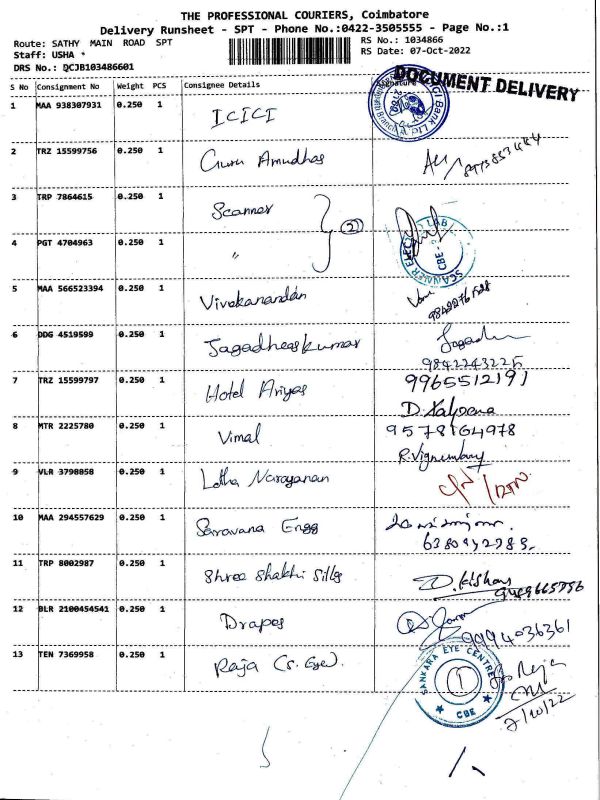 THE PROFESSIONAL COURIERS, Coimbatore
Delivery Runsheet - SPT - Phone No.:0422-3505555 - Page No.:1
Route: SATHY MAIN ROAD SPT
RS No.: 1034866
Staff: USHA *
RS Date: 07-Oct-2022
DRS No.: QCJB103486601
DOCUMENT DELIVERY
S No Consignment No Weight PCS Consignee Details
1 MAA 938307931 0.250 1 ICICI
2 TRZ 15599756 0.250 1 Guru Amudhas
3 TRP 7864615 0.250 1 Scanner
2
4 PGT 4704963 0.250 1 "
SCANNER ELEC LAB CBE
5 MAA 566523394 0.250 1 Vivekanandan
6 DDG 4519599 0.250 1 Jagadheeskumar
9842243225
7 TRZ 15599797 0.250 1 Hotel Ariyas 9965512191
D. Kalpana
8 MTR 2225780 0.250 1 Vimal 9578164978
9 VLR 3798058 0.250 1 Latha Narayanan
10 MAA 294557629 0.250 1 Saravana Engg
11 TRP 8002987 0.250 1 Shree Shakthi Silks
12 BLR 2100454541 0.250 1 Drapes
9994036361
13 TEN 7369958 0.250 1 Raja (S. Eye).
SANKARA EYE CENTRE CBE
7/10/22